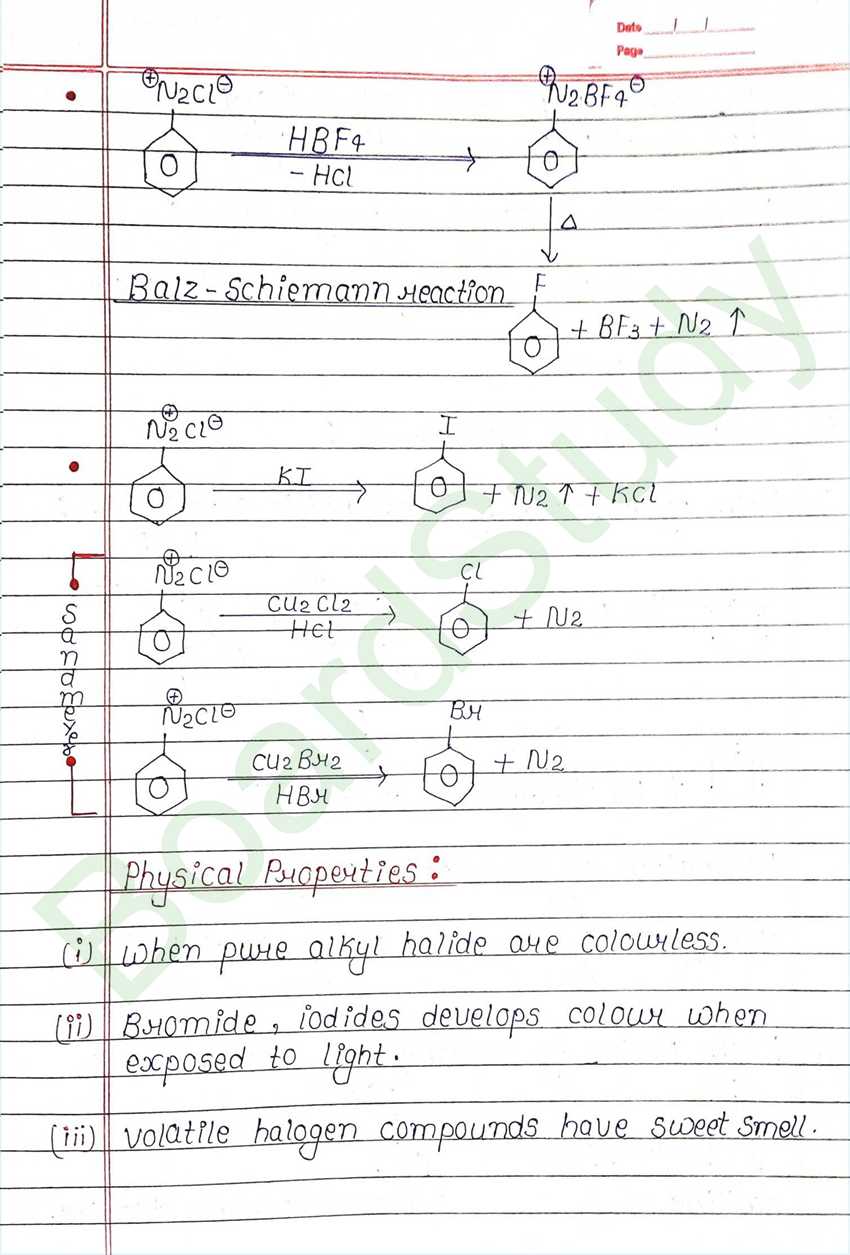 Date
Page
⊕N2Cl⊖ ⊕N2BF4⊖
HBF4
- HCl
Δ
Balz-Schiemann reaction
F
+ BF3 + N2 ↑
⊕N2Cl⊖ I
KI
+ N2 ↑ + KCl
⊕N2Cl⊖ Cl
Cu2Cl2
HCl
+ N2
Sandmeyer
⊕N2Cl⊖ Br
Cu2Br2
HBr
+ N2
Physical Properties:
(i) When pure alkyl halide are colourless.
(ii) Bromide, iodides develops colour when
exposed to light.
(iii) Volatile halogen compounds have sweet smell.
BoardStudy